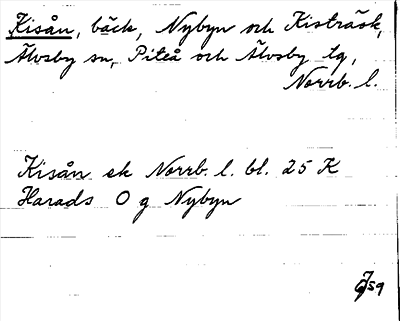 Kisån, bäck, Nybyn och Kisträsk,
Älvsby sn, Piteå och Älvsby tg,
Norrb. l.
Kisån ek Norrb. l. bl. 25 K
Harads O g Nybyn
59